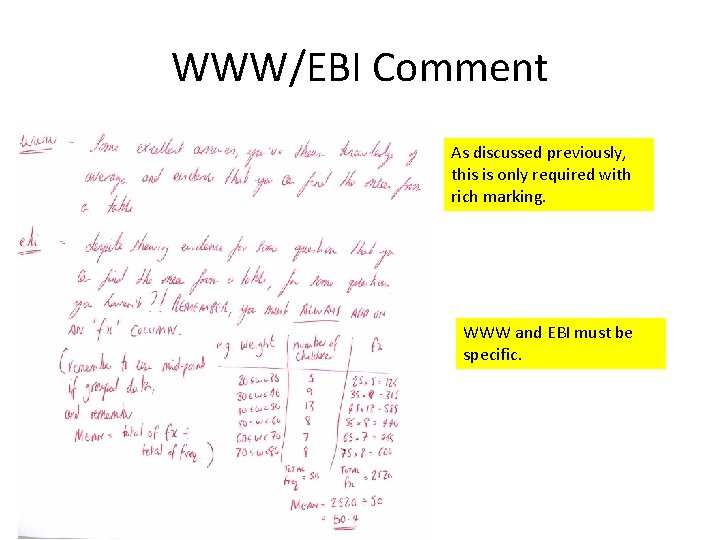 WWW/EBI Comment
WWW - Some excellent answers, you've shown knowledge of
average and evidence that you can find the mean from
a table
As discussed previously,
this is only required with
rich marking.
ebi = despite showing evidence for some question that you
can find the mean from a table, for some question,
you haven't?! REMEMBER, you must ALWAYS ADD ON
AN 'fx' COLUMN.
WWW and EBI must be
specific.
(remember to use mid-point
if grouped data,
and remember
MEAN = total of fx ÷
total of freq )
e.g. weight | number of children | fx
20≤w<30 | 5 | 25 x 5 = 125
30≤w<40 | 9 | 35 x 9 = 315
40≤w<50 | 13 | 45 x 13 = 585
50≤w<60 | 8 | 55 x 8 = 440
60≤w<70 | 7 | 65 x 7 = 455
70≤w<80 | 8 | 75 x 8 = 600
TOTAL freq = 50 TOTAL fx = 2520
MEAN = 2520 ÷ 50
= 50.4